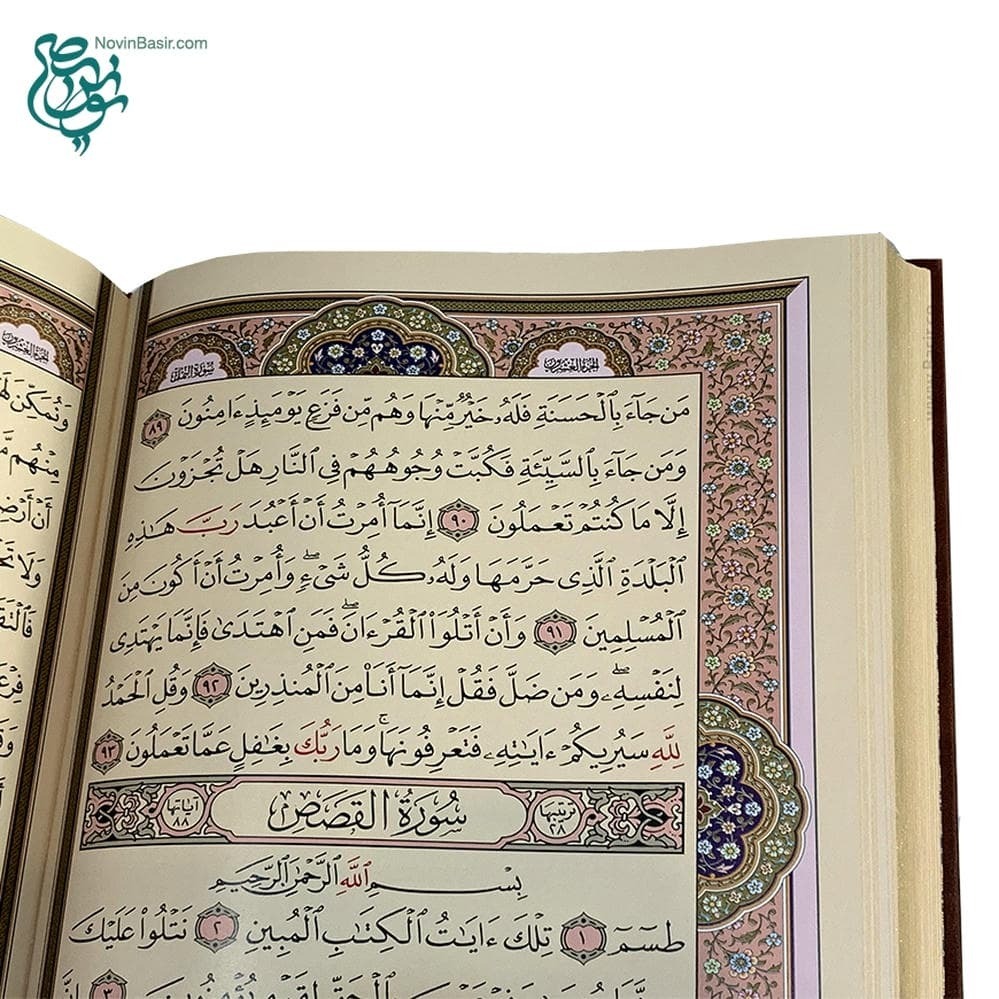 NovinBasir.com
سورة النمل
الجزء العشرون
مَن جَآءَ بِٱلْحَسَنَةِ فَلَهُۥ خَيْرٌ مِّنْهَا وَهُم مِّن فَزَعٍ يَوْمَئِذٍ ءَامِنُونَ ٨٩
وَمَن جَآءَ بِٱلسَّيِّئَةِ فَكُبَّتْ وُجُوهُهُمْ فِى ٱلنَّارِ هَلْ تُجْزَوْنَ
إِلَّا مَا كُنتُمْ تَعْمَلُونَ ٩٠ إِنَّمَآ أُمِرْتُ أَنْ أَعْبُدَ رَبَّ هَٰذِهِ
ٱلْبَلْدَةِ ٱلَّذِى حَرَّمَهَا وَلَهُۥ كُلُّ شَىْءٍ ۖ وَأُمِرْتُ أَنْ أَكُونَ مِنَ
ٱلْمُسْلِمِينَ ٩١ وَأَنْ أَتْلُوَا۟ ٱلْقُرْءَانَ ۖ فَمَنِ ٱهْتَدَىٰ فَإِنَّمَا يَهْتَدِى
لِنَفْسِهِۦ ۖ وَمَن ضَلَّ فَقُلْ إِنَّمَآ أَنَا۠ مِنَ ٱلْمُنذِرِينَ ٩٢ وَقُلِ ٱلْحَمْدُ
لِلَّهِ سَيُرِيكُمْ ءَايَٰتِهِۦ فَتَعْرِفُونَهَا ۚ وَمَا رَبُّكَ بِغَٰفِلٍ عَمَّا تَعْمَلُونَ ٩٣
ترتيبها ٢٨
سُورَةُ القَصَصِ
آياتها ٨٨
بِسْمِ ٱللَّهِ ٱلرَّحْمَٰنِ ٱلرَّحِيمِ
طسٓمٓ ١ تِلْكَ ءَايَٰتُ ٱلْكِتَٰبِ ٱلْمُبِينِ ٢ نَتْلُوا۟ عَلَيْكَ
وَنُمَكِّنَ
مِنْهُم